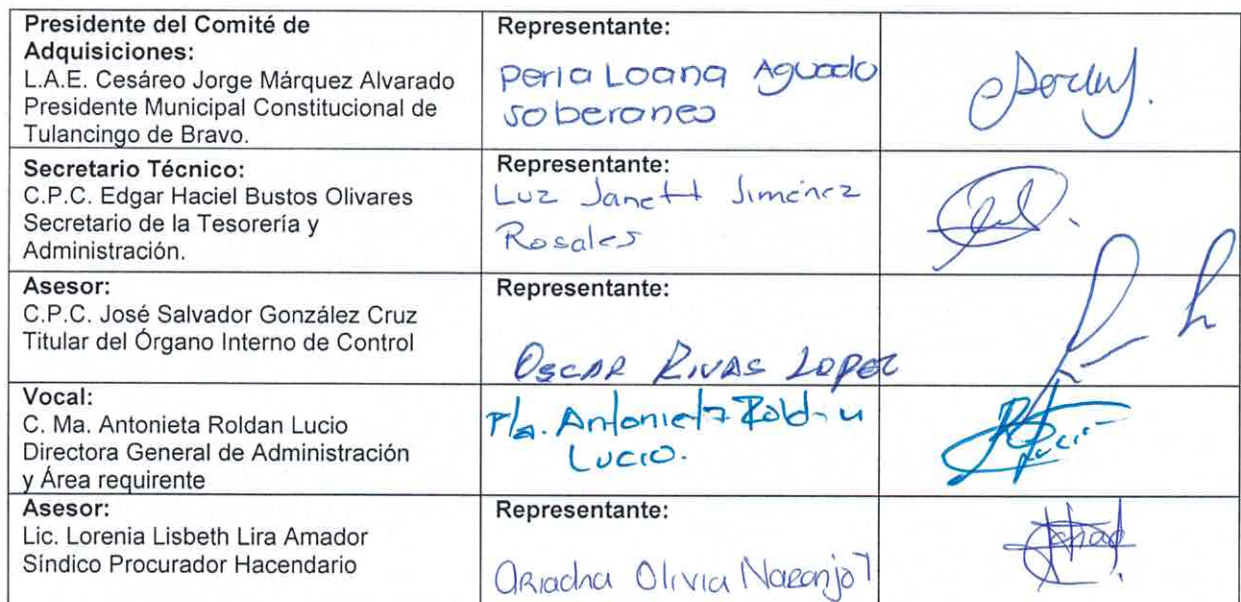 Presidente del Comité de
Adquisiciones:
L.A.E. Cesáreo Jorge Márquez Alvarado
Presidente Municipal Constitucional de
Tulancingo de Bravo.
Representante:
Perla Loana Aguado
soberanes
Secretario Técnico:
C.P.C. Edgar Haciel Bustos Olivares
Secretario de la Tesorería y
Administración.
Representante:
Luz Janett Jiménez
Rosales
Asesor:
C.P.C. José Salvador González Cruz
Titular del Órgano Interno de Control
Representante:
OSCAR RIVAS LOPEZ
Vocal:
C. Ma. Antonieta Roldan Lucio
Directora General de Administración
y Área requirente
Ma. Antonieta Roldan
Lucio.
Asesor:
Lic. Lorenia Lisbeth Lira Amador
Síndico Procurador Hacendario
Representante:
Ariadna Olivia Naranjo